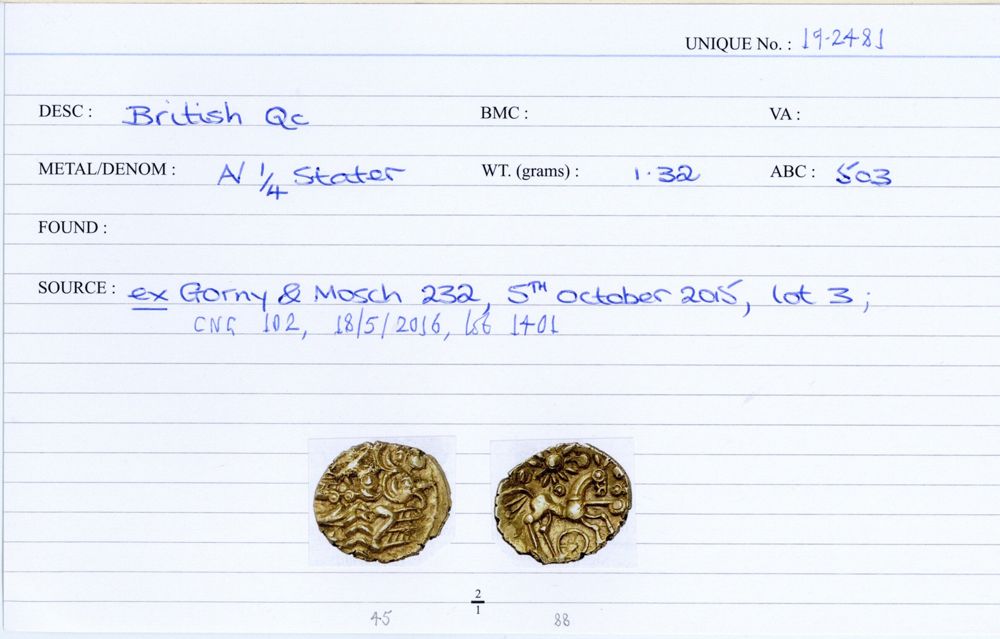 UNIQUE No. : 19-2481
DESC : British Qc BMC : VA :
METAL/DENOM : AV 1/4 Stater WT. (grams) : 1.32 ABC : 503
FOUND :
SOURCE : ex Gorny & Mosch 232, 5TH October 2015, lot 3 ;
CNG 102, 18/5/2016, lot 1401
2/1
45 88